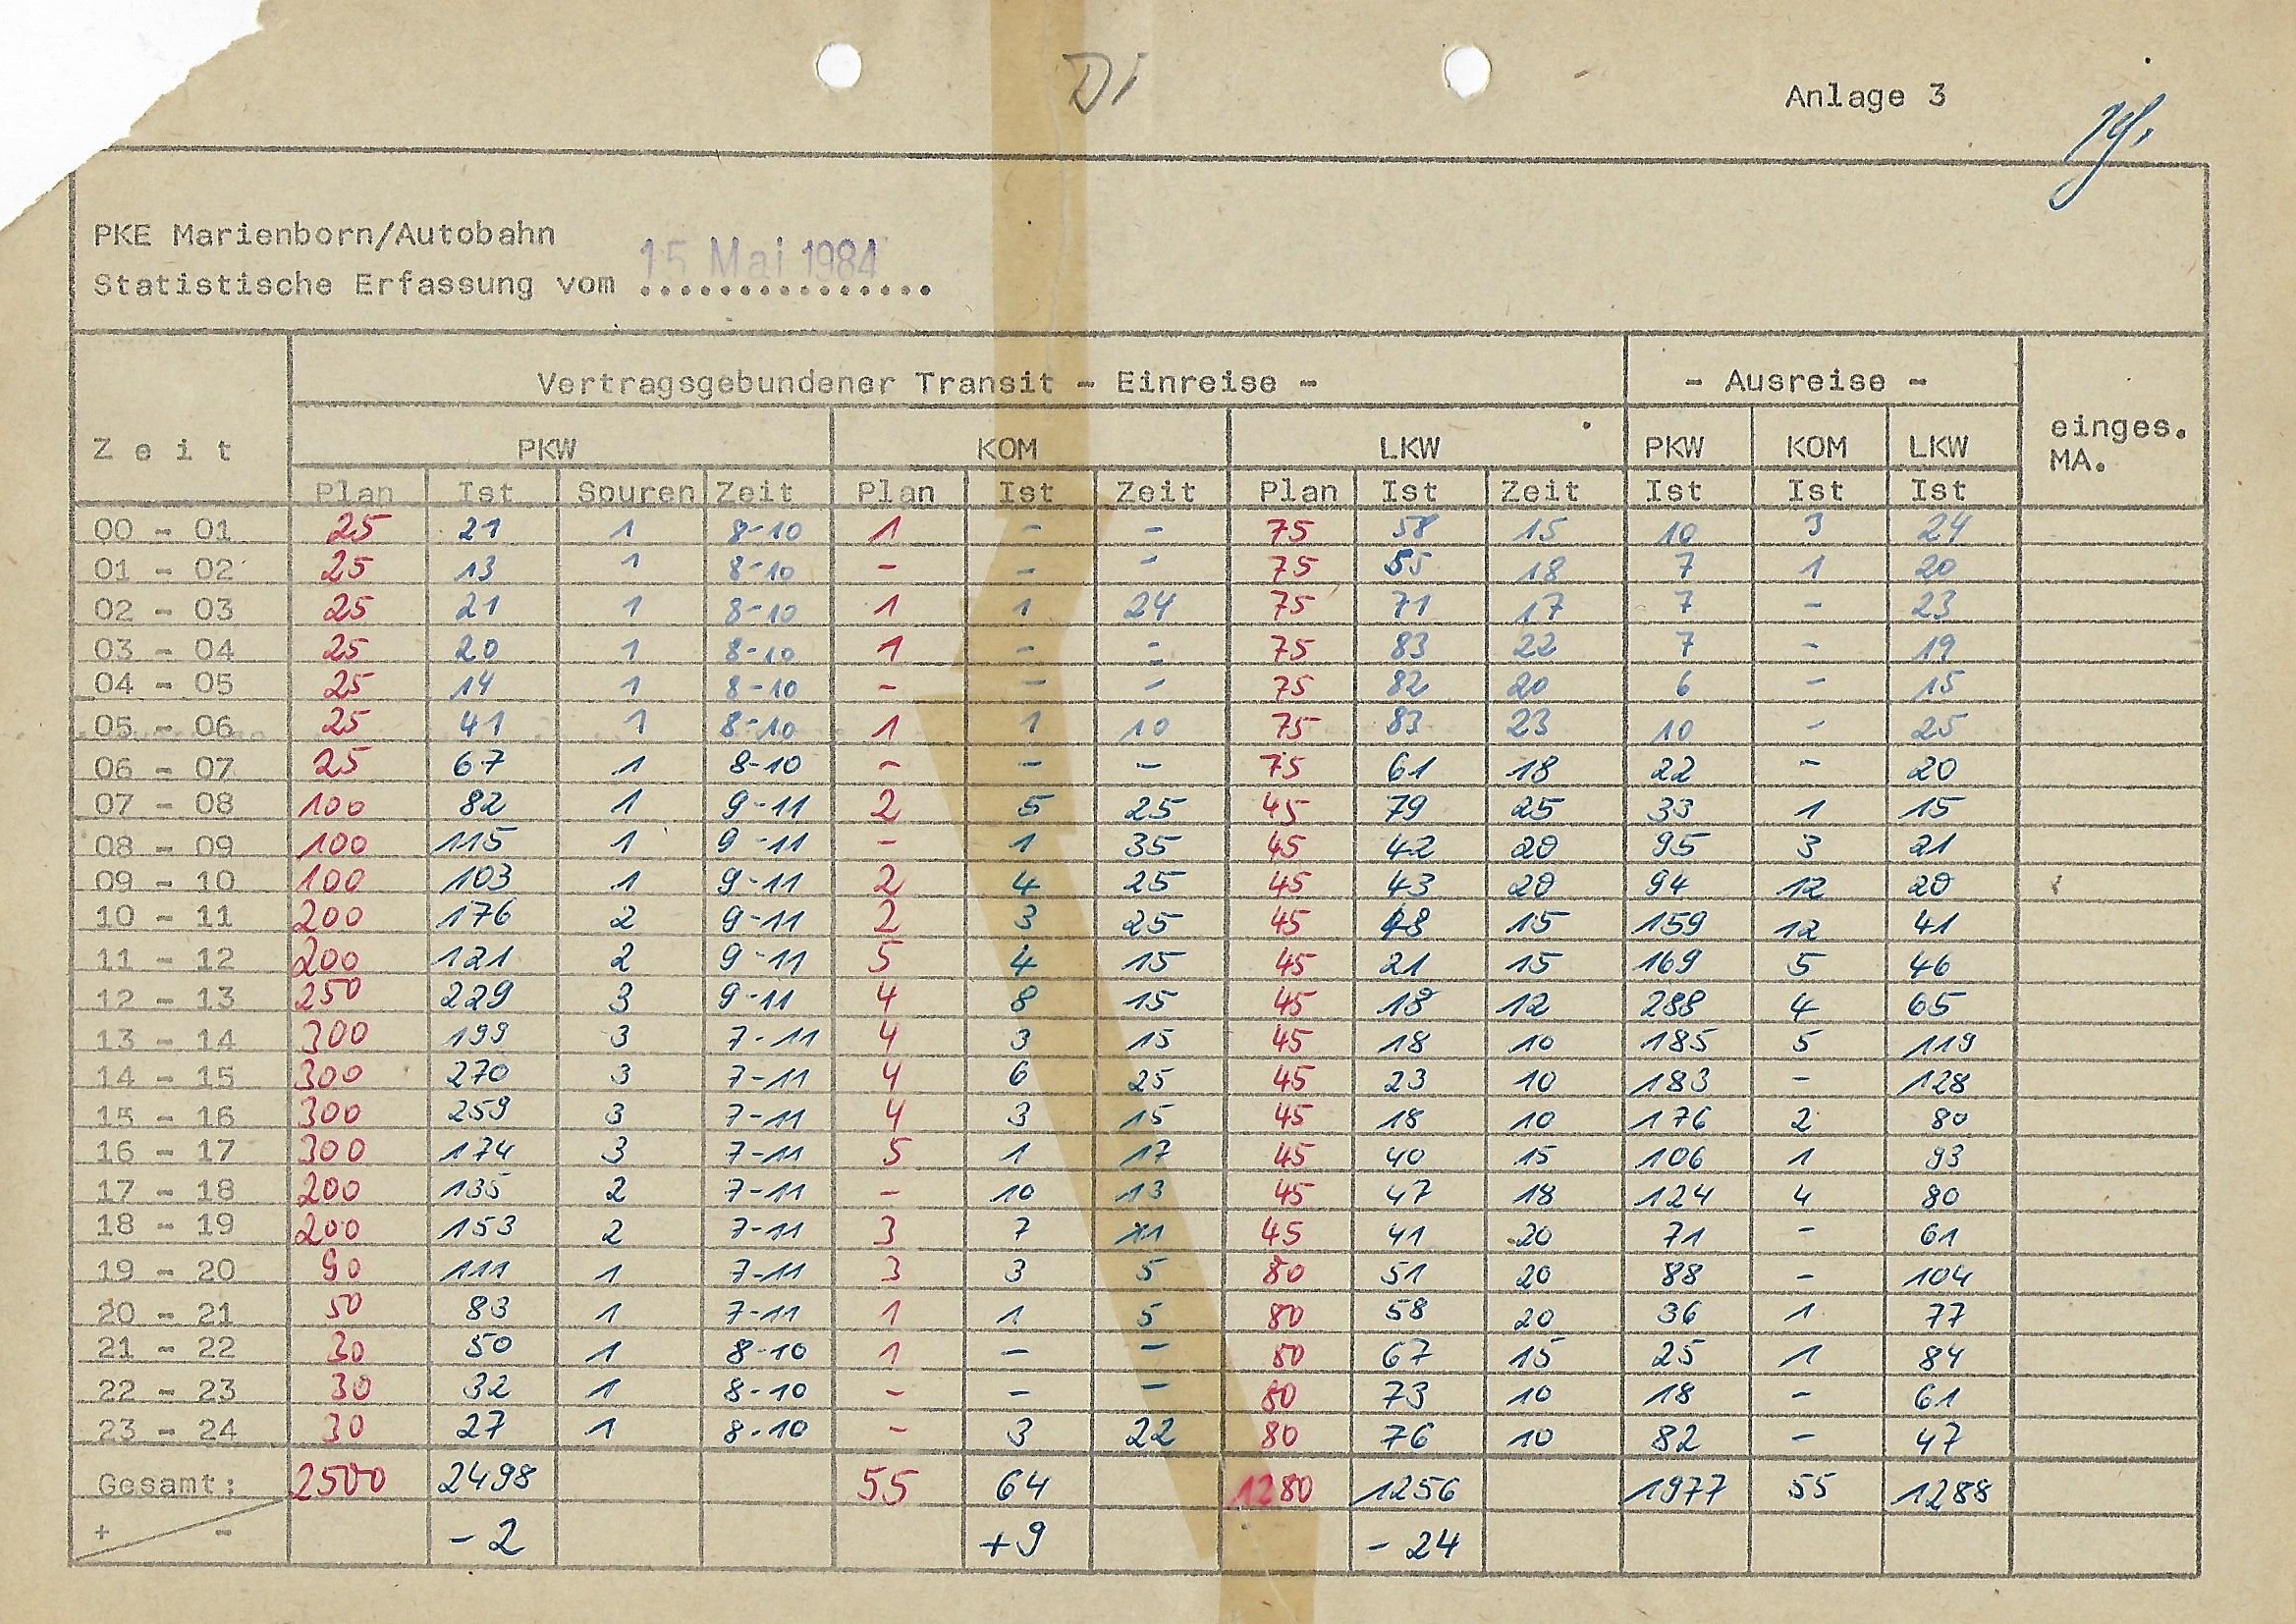 Di
Anlage 3
PKE Marienborn/Autobahn
15 Mai 1984
Statistische Erfassung vom ...............
Vertragsgebundener Transit - Einreise - - Ausreise -
Zeit PKW KOM LKW PKW KOM LKW einges. MA.
Plan Ist Spuren Zeit Plan Ist Zeit Plan Ist Zeit Ist Ist Ist
00 - 01 25 21 1 8-10 1 - - 75 58 15 10 3 24
01 - 02 25 13 1 8-10 - - - 75 55 18 7 1 20
02 - 03 25 21 1 8-10 1 1 24 75 71 17 7 - 23
03 - 04 25 20 1 8-10 1 - - 75 83 22 7 - 19
04 - 05 25 14 1 8-10 - - - 75 82 20 6 - 15
05 - 06 25 41 1 8-10 1 1 10 75 83 23 10 - 25
06 - 07 25 67 1 8-10 - - - 75 61 18 22 - 20
07 - 08 100 82 1 9-11 2 5 25 45 79 25 33 1 15
08 - 09 100 115 1 9-11 - 1 35 45 42 20 95 3 21
09 - 10 100 103 1 9-11 2 4 25 45 43 20 94 12 20
10 - 11 200 176 2 9-11 2 3 25 45 48 15 159 12 41
11 - 12 200 121 2 9-11 5 4 15 45 21 15 169 5 46
12 - 13 250 229 3 9-11 4 8 15 45 18 12 288 4 65
13 - 14 300 199 3 7-11 4 3 15 45 18 10 185 5 119
14 - 15 300 270 3 7-11 4 6 25 45 23 10 183 - 128
15 - 16 300 259 3 7-11 4 3 15 45 18 10 176 2 80
16 - 17 300 174 3 7-11 5 1 17 45 40 15 106 1 93
17 - 18 200 135 2 7-11 - 10 13 45 47 18 124 4 80
18 - 19 200 153 2 7-11 3 7 11 45 41 20 71 - 61
19 - 20 90 111 1 7-11 3 3 5 80 51 20 88 - 104
20 - 21 50 83 1 7-11 1 1 5 80 58 20 36 1 77
21 - 22 30 50 1 8-10 1 - - 80 67 15 25 1 84
22 - 23 30 32 1 8-10 - - - 80 73 10 18 - 61
23 - 24 30 27 1 8-10 - 3 22 80 76 10 82 - 47
Gesamt: 2500 2498 55 64 1280 1256 1977 55 1288
+ - - 2 +9 - 24